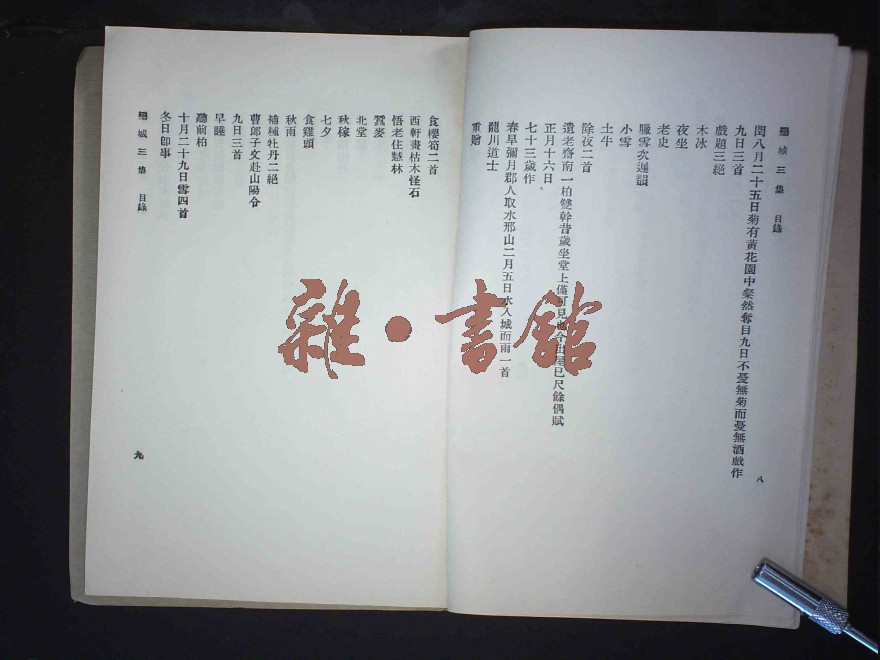 欒城三集 目錄
閏八月二十五日菊有黃花園中粲然奪目九日不憂無菊而憂無酒戲作
九日三首
戲題三絕
木冰
夜坐
老史
臘雪次遲韻
小雪
土牛
除夜二首
遺老齋南一柏雙幹昔歲坐堂上僅可見也今出屋已尺餘偶賦
正月十六日
七十三歲作
春旱彌月郡人取水邢山二月五日水入城而雨一首
龍川道士
重贈
八
食櫻筍二首
西軒畫枯木怪石
悟老住慧林
蠶麥
北堂
秋稼
七夕
食雞頭
秋雨
補種牡丹二絕
曹郎子文赴山陽令
九日三首
早睡
廳前柏
十月二十九日雪四首
冬日即事
欒城三集 目錄
九
雜·書館